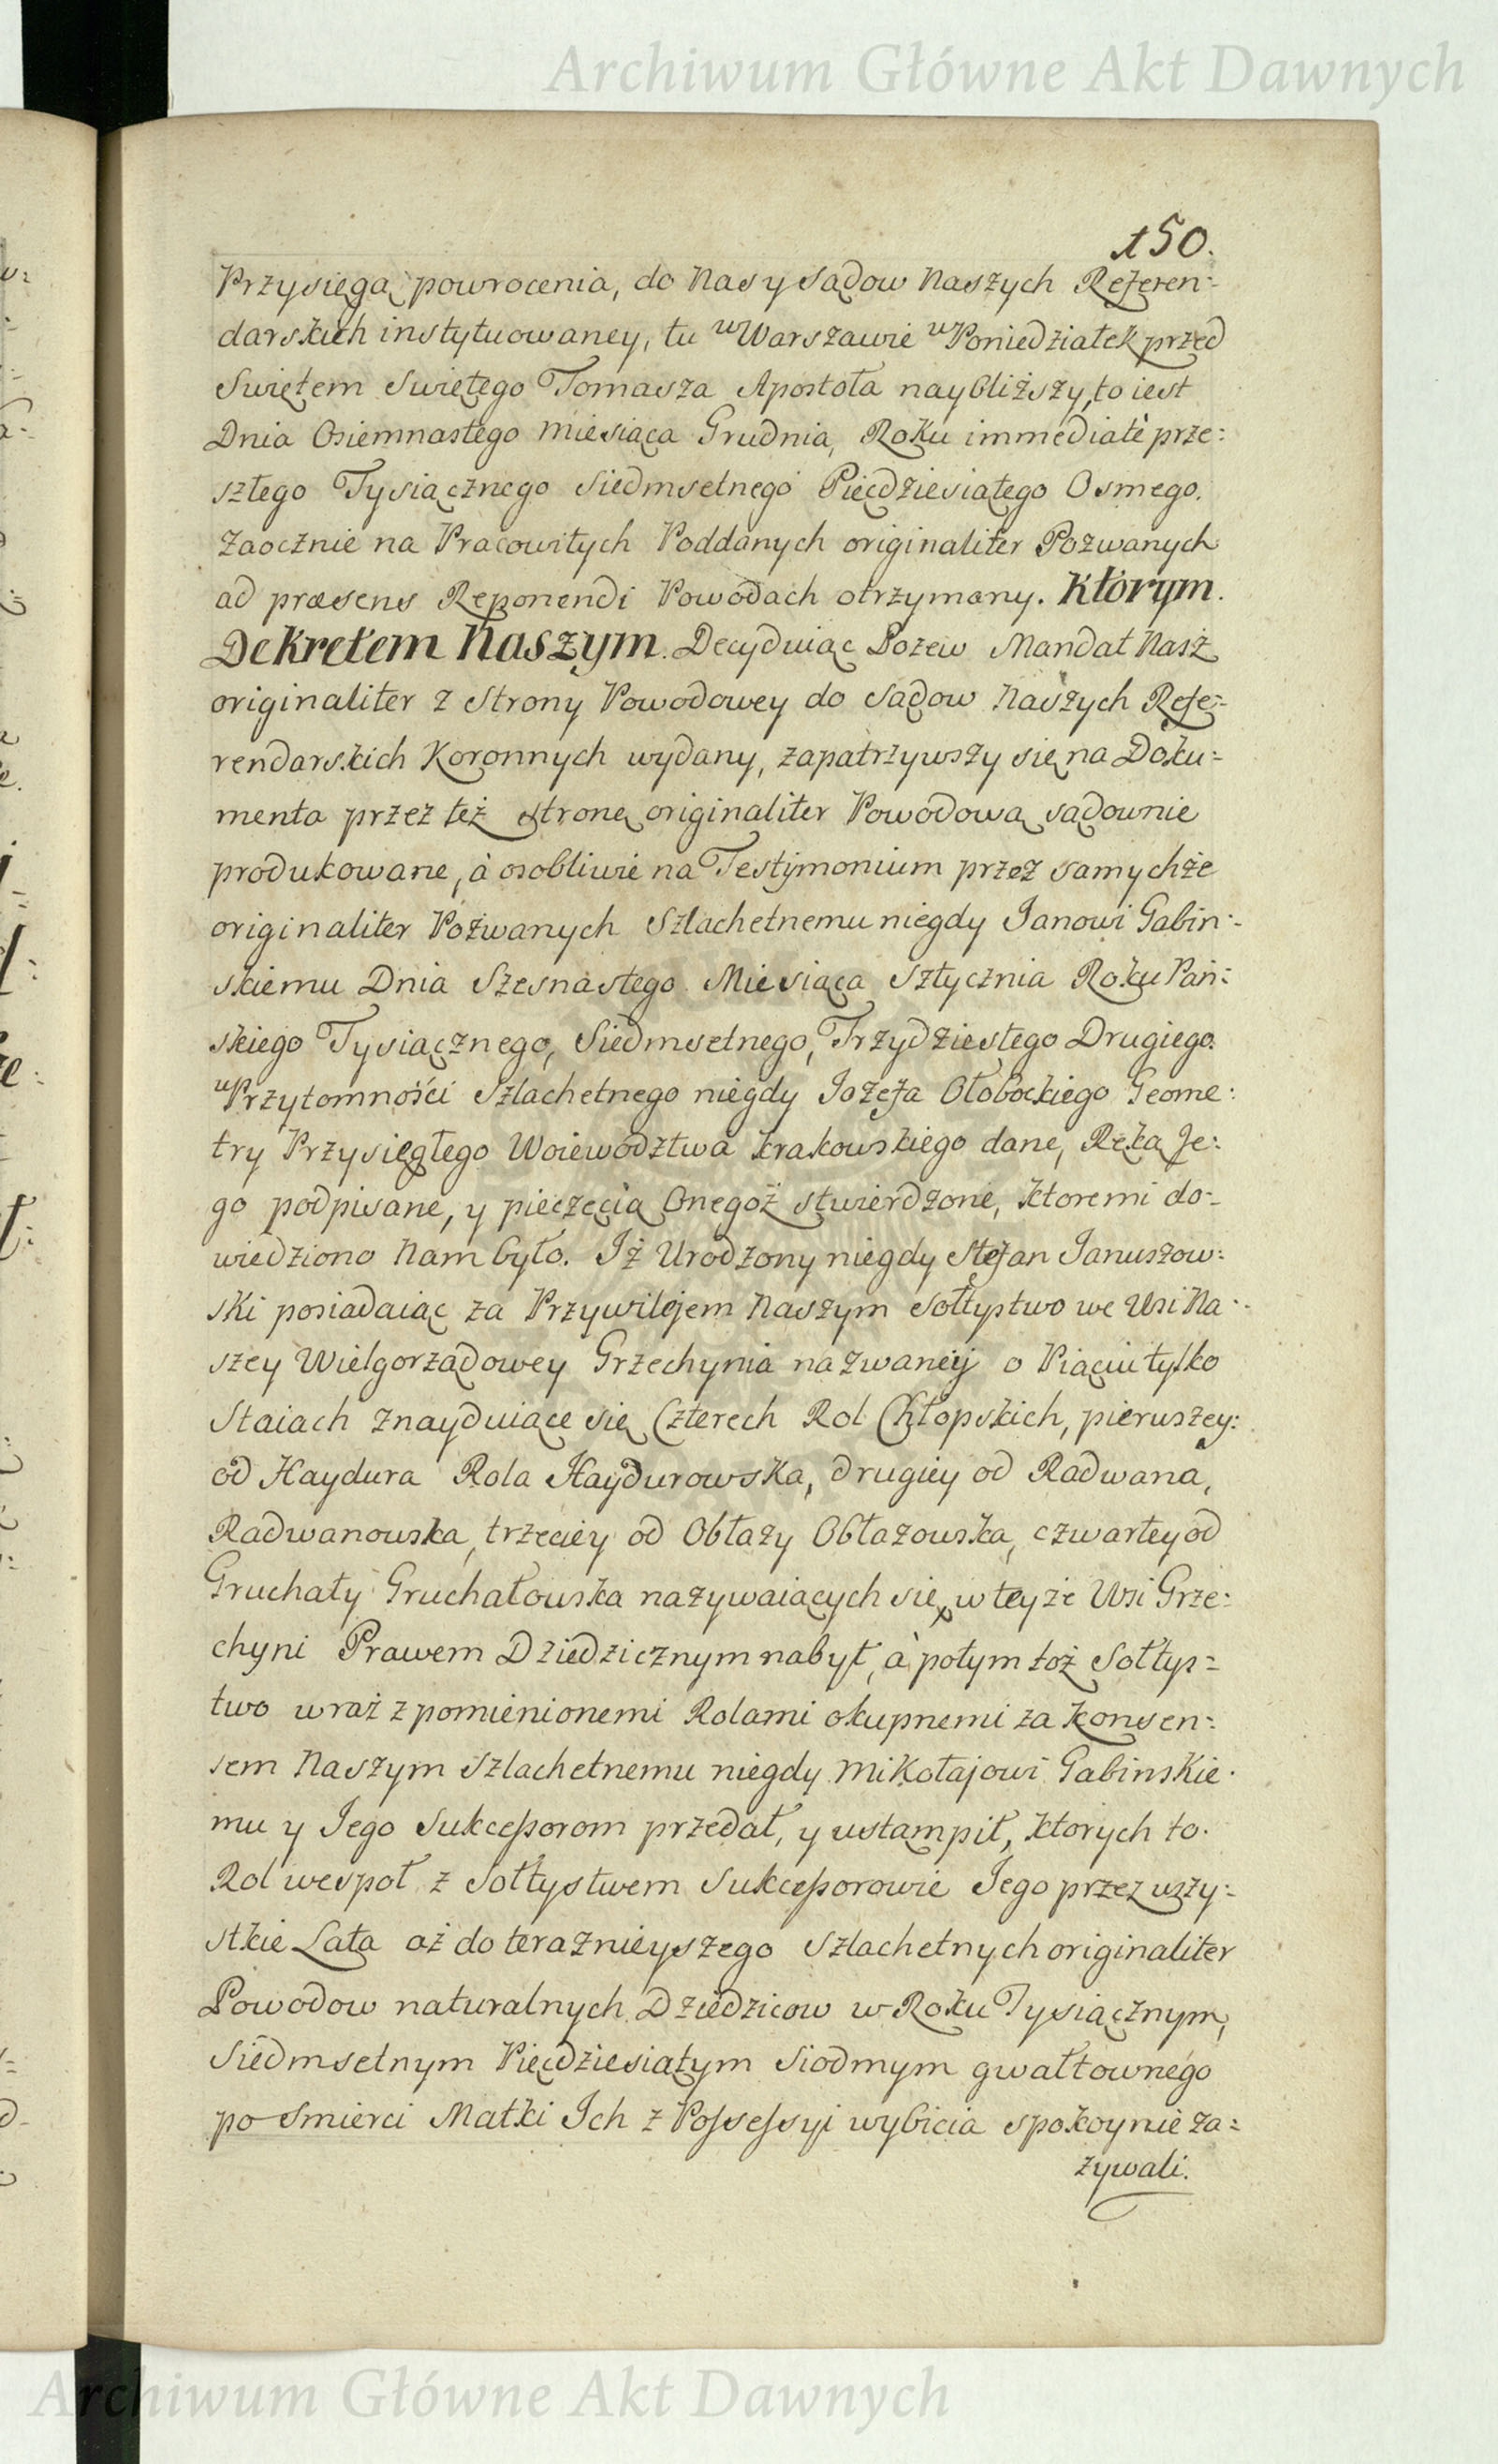 Archiwum Główne Akt Dawnych
150.
Przysięgą powrocenia, do Nas y Sądow Naszych Referen=
darskich instytuowaney, tu w Warszawie w Poniedziałek przed
Swiętem Swiętego Tomasza Apostoła naybliższy, to iest
Dnia Osiemnastego Miesiąca Grudnia, Roku immediatè prze=
szłego Tysiącznego Siedmsetnego Pięcdziesiątego Osmego.
Zaocznie na Pracowitych Poddanych originaliter Pozwanych
ad præsens Reponendi Powodach otrzymany. Ktorym.
Dekretem Naszym. Decyduiąc Pozew Mandat Nasz
originaliter z Strony Powodowey do Sądow Naszych Refe=
rendarskich Koronnych wydany, zapatrzywszy się na Doku=
menta przez też stronę originaliter Powodową sądownie
produkowane, à osobliwie na Testymonium przez samychże
originaliter Pozwanych Szlachetnemu niegdy Janowi Gabin=
skiemu Dnia Szesnastego Miesiąca Sztycznia Roku Pań=
skiego Tysiącznego, Siedmsetnego, Trzydziestego Drugiego.
w Przytomności Szlachetnego niegdy Jozefa Ołobockiego Geome=
try Przysięgłego Woiewodztwa Krakowskiego dane, Ręką Je=
go podpisane, y pieczęcią Onegoż stwierdzone, ktoremi do=
wiedziono Nam było. Iż Urodzony niegdy Stefan Januszow=
ski posiadaiąc za Przywilejem Naszym Sołtystwo we Wsi Na=
szey Wielgorządowey Grzechynia nazwaney o Piąciu tylko
Staiach znayduiące się Czterech Rol Chłopskich, pierwszey:
od Haydura Rola Haydurowska, drugiey od Radwana,
Radwanowska, trzeciey od Obłazy Obłazowska, czwartey od
Gruchały Gruchałowska nazywaiących się, w teyże Wsi Grze=
chyni Prawem Dziedzicznym nabył, à potym toż Sołtys=
two wraz z pomienionemi Rolami okupnemi za Konsen=
sem Naszym Szlachetnemu niegdy Mikołajowi Gabinskie=
mu y Jego Sukcessorom przedał, y ustampił, ktorych to.
Rol wespoł z Sołtystwem Sukcessorowie Jego przez wszy=
stkie Lata aż do teraznieyszego Szlachetnych originaliter
Powodow naturalnych Dziedzicow w Roku Tysiącznym,
Siedmsetnym Pięcdziesiątym Siodmym gwałtownego
po Smierci Matki Ich z Possessyi wybicia spokoynie za=
żywali.
Archiwum Główne Akt Dawnych